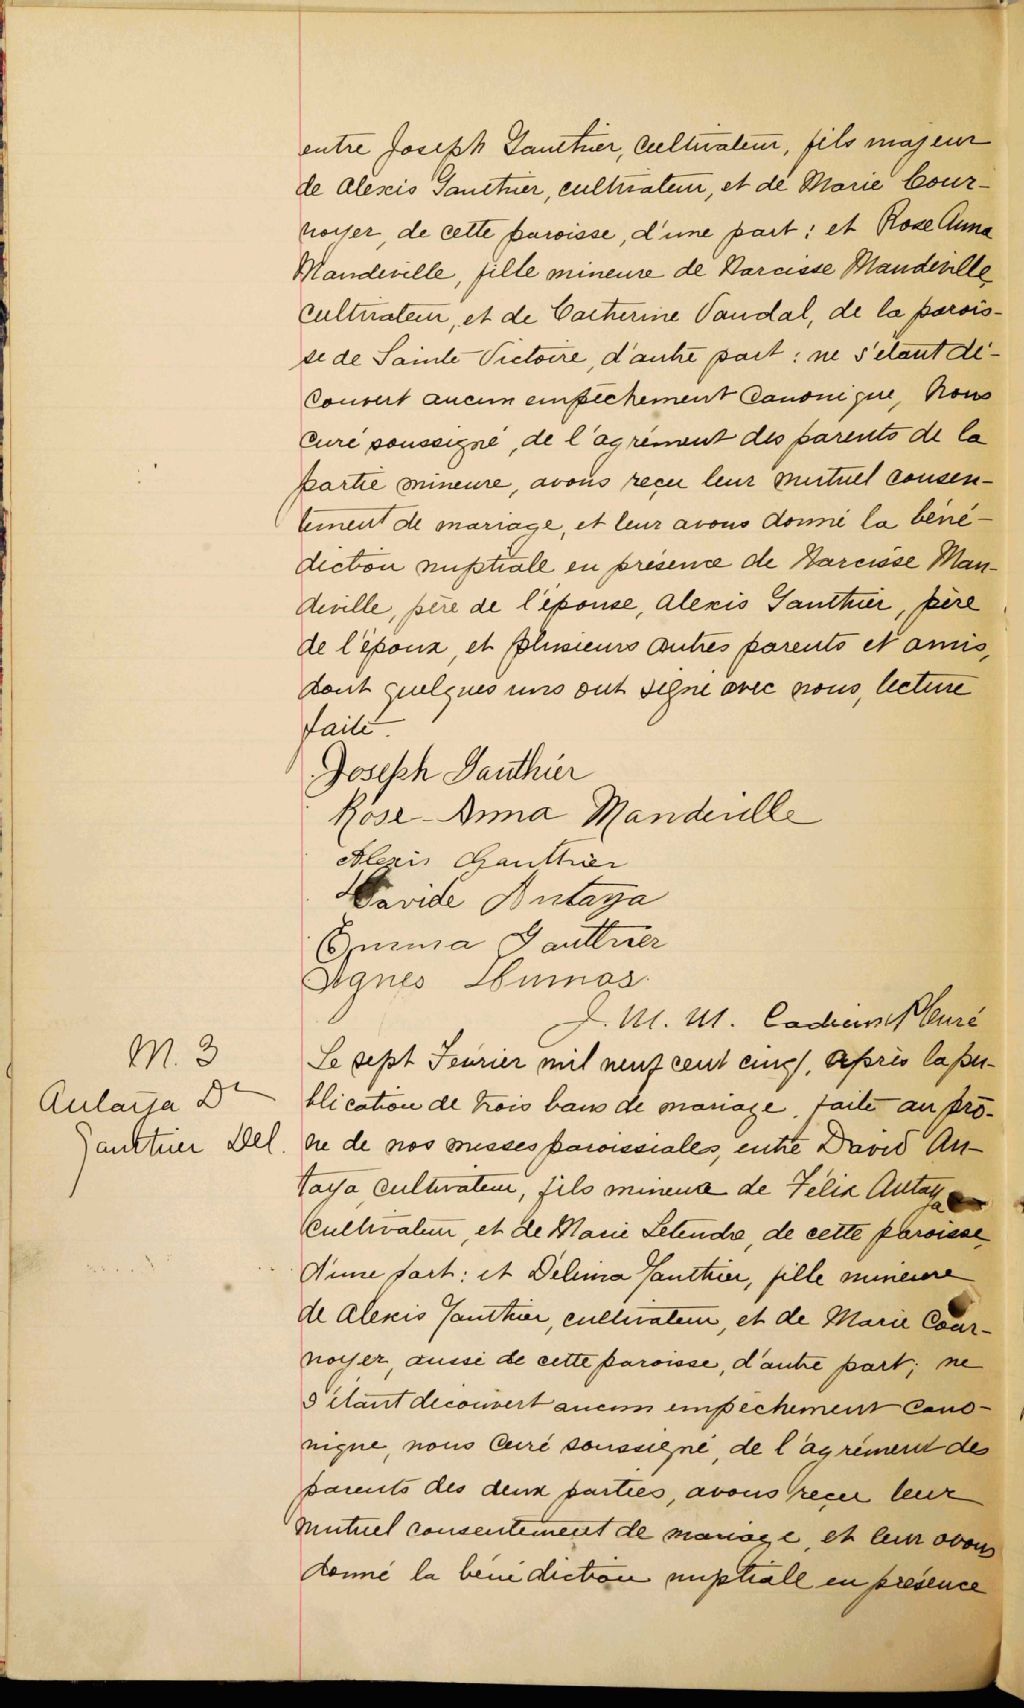 entre Joseph Gauthier, cultivateur, fils majeur
de Alexis Gauthier, cultivateur, et de Marie Cour-
noyer, de cette paroisse, d'une part : et Rose Anna
Mandeville, fille mineure de Narcisse Mandeville,
cultivateur, et de Catherine Vandal, de la parois-
se de Sainte Victoire, d'autre part : ne s'étant dé-
couvert aucun empêchement canonique, Nous
curé soussigné, de l'agrément des parents de la
partie mineure, avons reçu leur mutuel consen-
tement de mariage, et leur avons donné la béné-
diction nuptiale en présence de Narcisse Man-
deville, père de l'épouse, Alexis Gauthier, père
de l'époux, et plusieurs autres parents et amis,
dont quelques uns ont signé avec nous, lecture
faite.
Joseph Gauthier
Rose-Anna Mandeville
Alexis Gauthier
Davide Antaya
Emma Gauthier
Agnes Dumas
J. M. M. Cadieux Ptre Curé
M. 3
Antaya Dd
Gauthier Del.
Le sept Février mil neuf cent cinq, après la pu-
blication de trois bans de mariage, faite au prô-
ne de nos messes paroissiales, entre David An-
taya, cultivateur, fils mineur de Félix Antaya
cultivateur, et de Marie Letendre, de cette paroisse,
d'une part : et Délima Gauthier, fille mineure
de Alexis Gauthier, cultivateur, et de Marie Cour-
noyer, aussi de cette paroisse, d'autre part ; ne
s'étant découvert aucun empêchement cano-
nique, nous Curé soussigné, de l'agrément des
parents des deux parties, avons reçu leur
mutuel consentement de mariage, et leur avons
donné la bénédiction nuptiale en présence